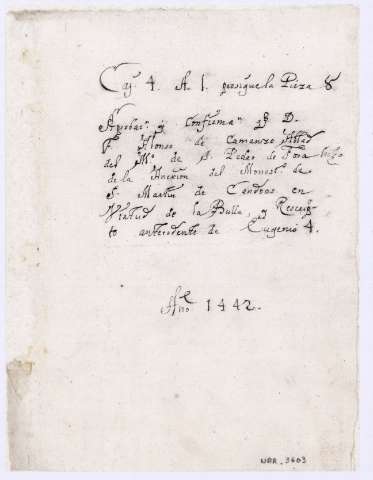 Caj. 4. A. 1. prosigue la Pieza 8
Aprobac.n y Confirma.n
F. Alonso de Camanzo Abbad
del M.o de S. Pedro de Fora
de la Anexión del Monest.o de
S. Martin de Candoas en
Virtud de la Bulla, y Rescrip
to antecedente de Eugenio 4.
Año 1442.
NRR. 3663